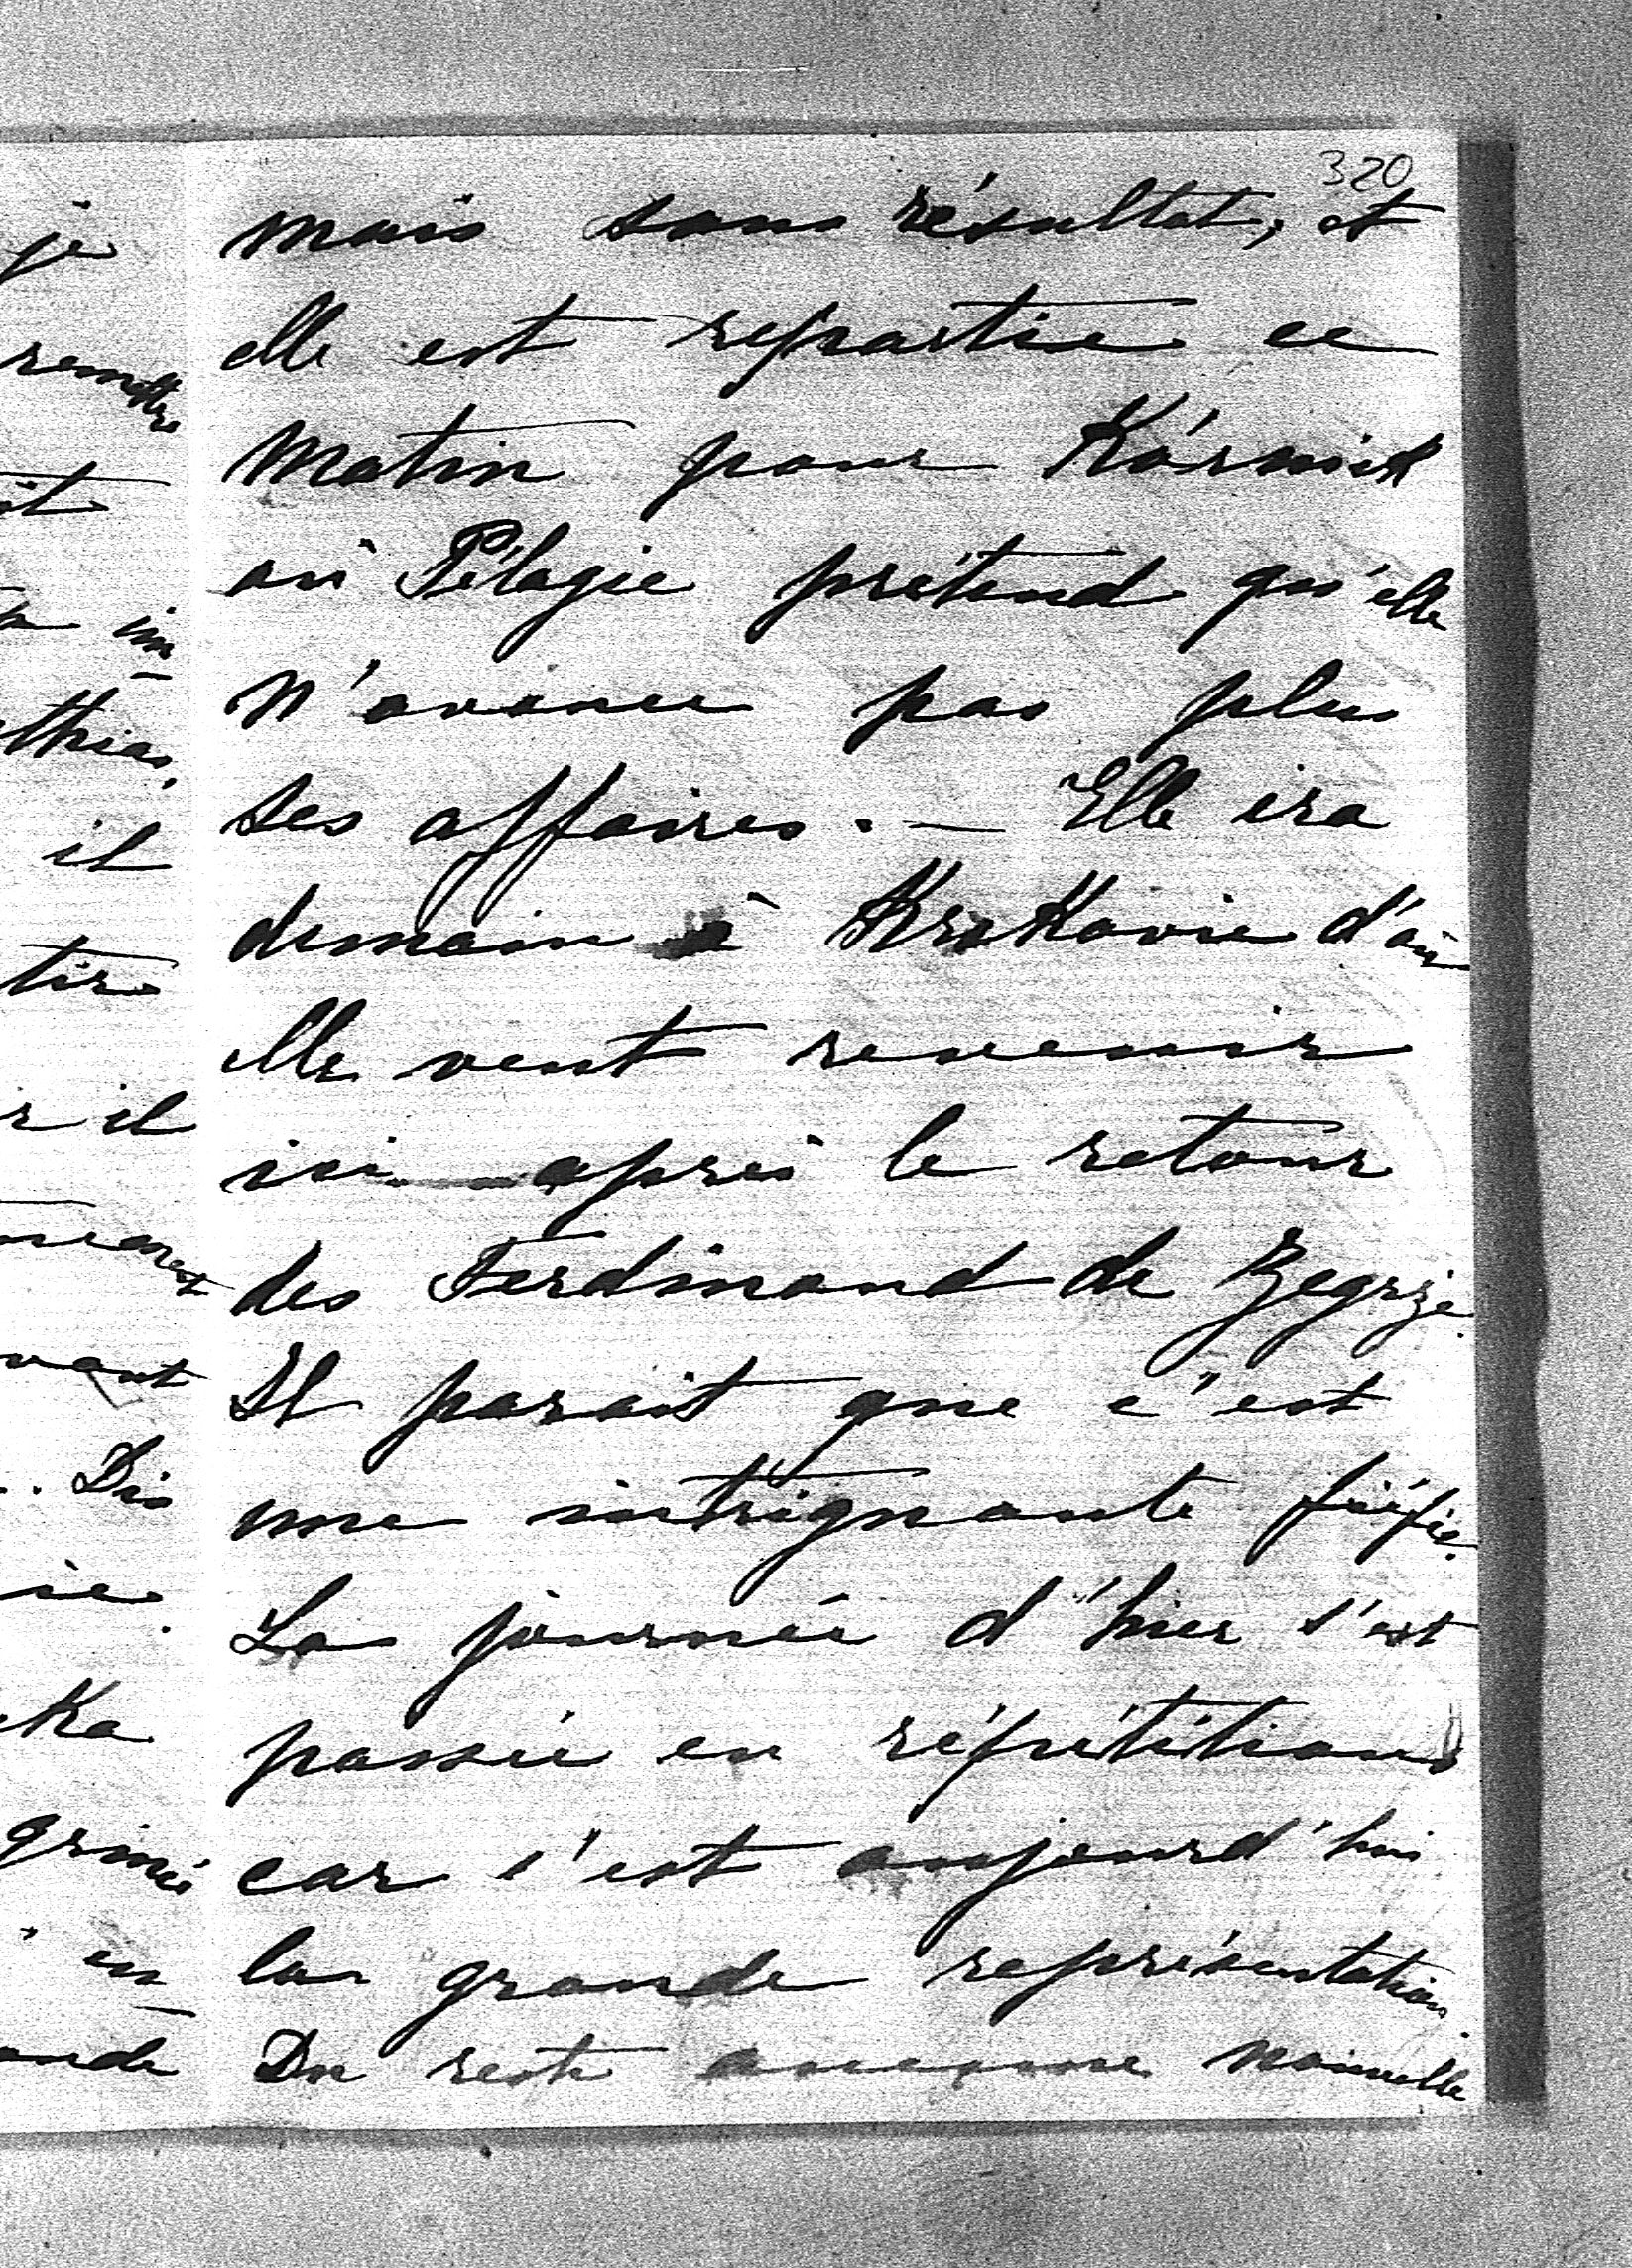 320
mais sans résultat, et
elle est repartie ce
matin pour Kórnik
où Pélagie prétend qu'elle
n'avance pas plus
ses affaires. — Elle ira
demain à Krakovie d'où
elle veut revenir
ici après le retour
des Ferdinand de Zegrze.
Il parait que c'est
une intrigante fiéfée.
La journée d'hier s'est
passée en répétitions
car c'est aujourd'hui
la grande représentation.
Du reste aucune nouvelle
je
remettre
im
thias,
il
tir
il
vant
.. Dis
ie.
ka
en